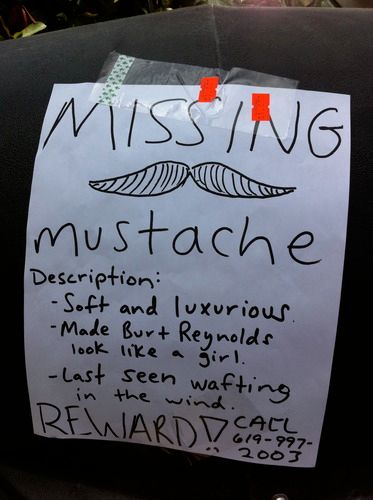 MISSING
mustache
Description:
- Soft and luxurious.
- Made Burt Reynolds
look like a girl.
- Last seen wafting
in the wind.
REWARD!
CALL
619-997-
2003